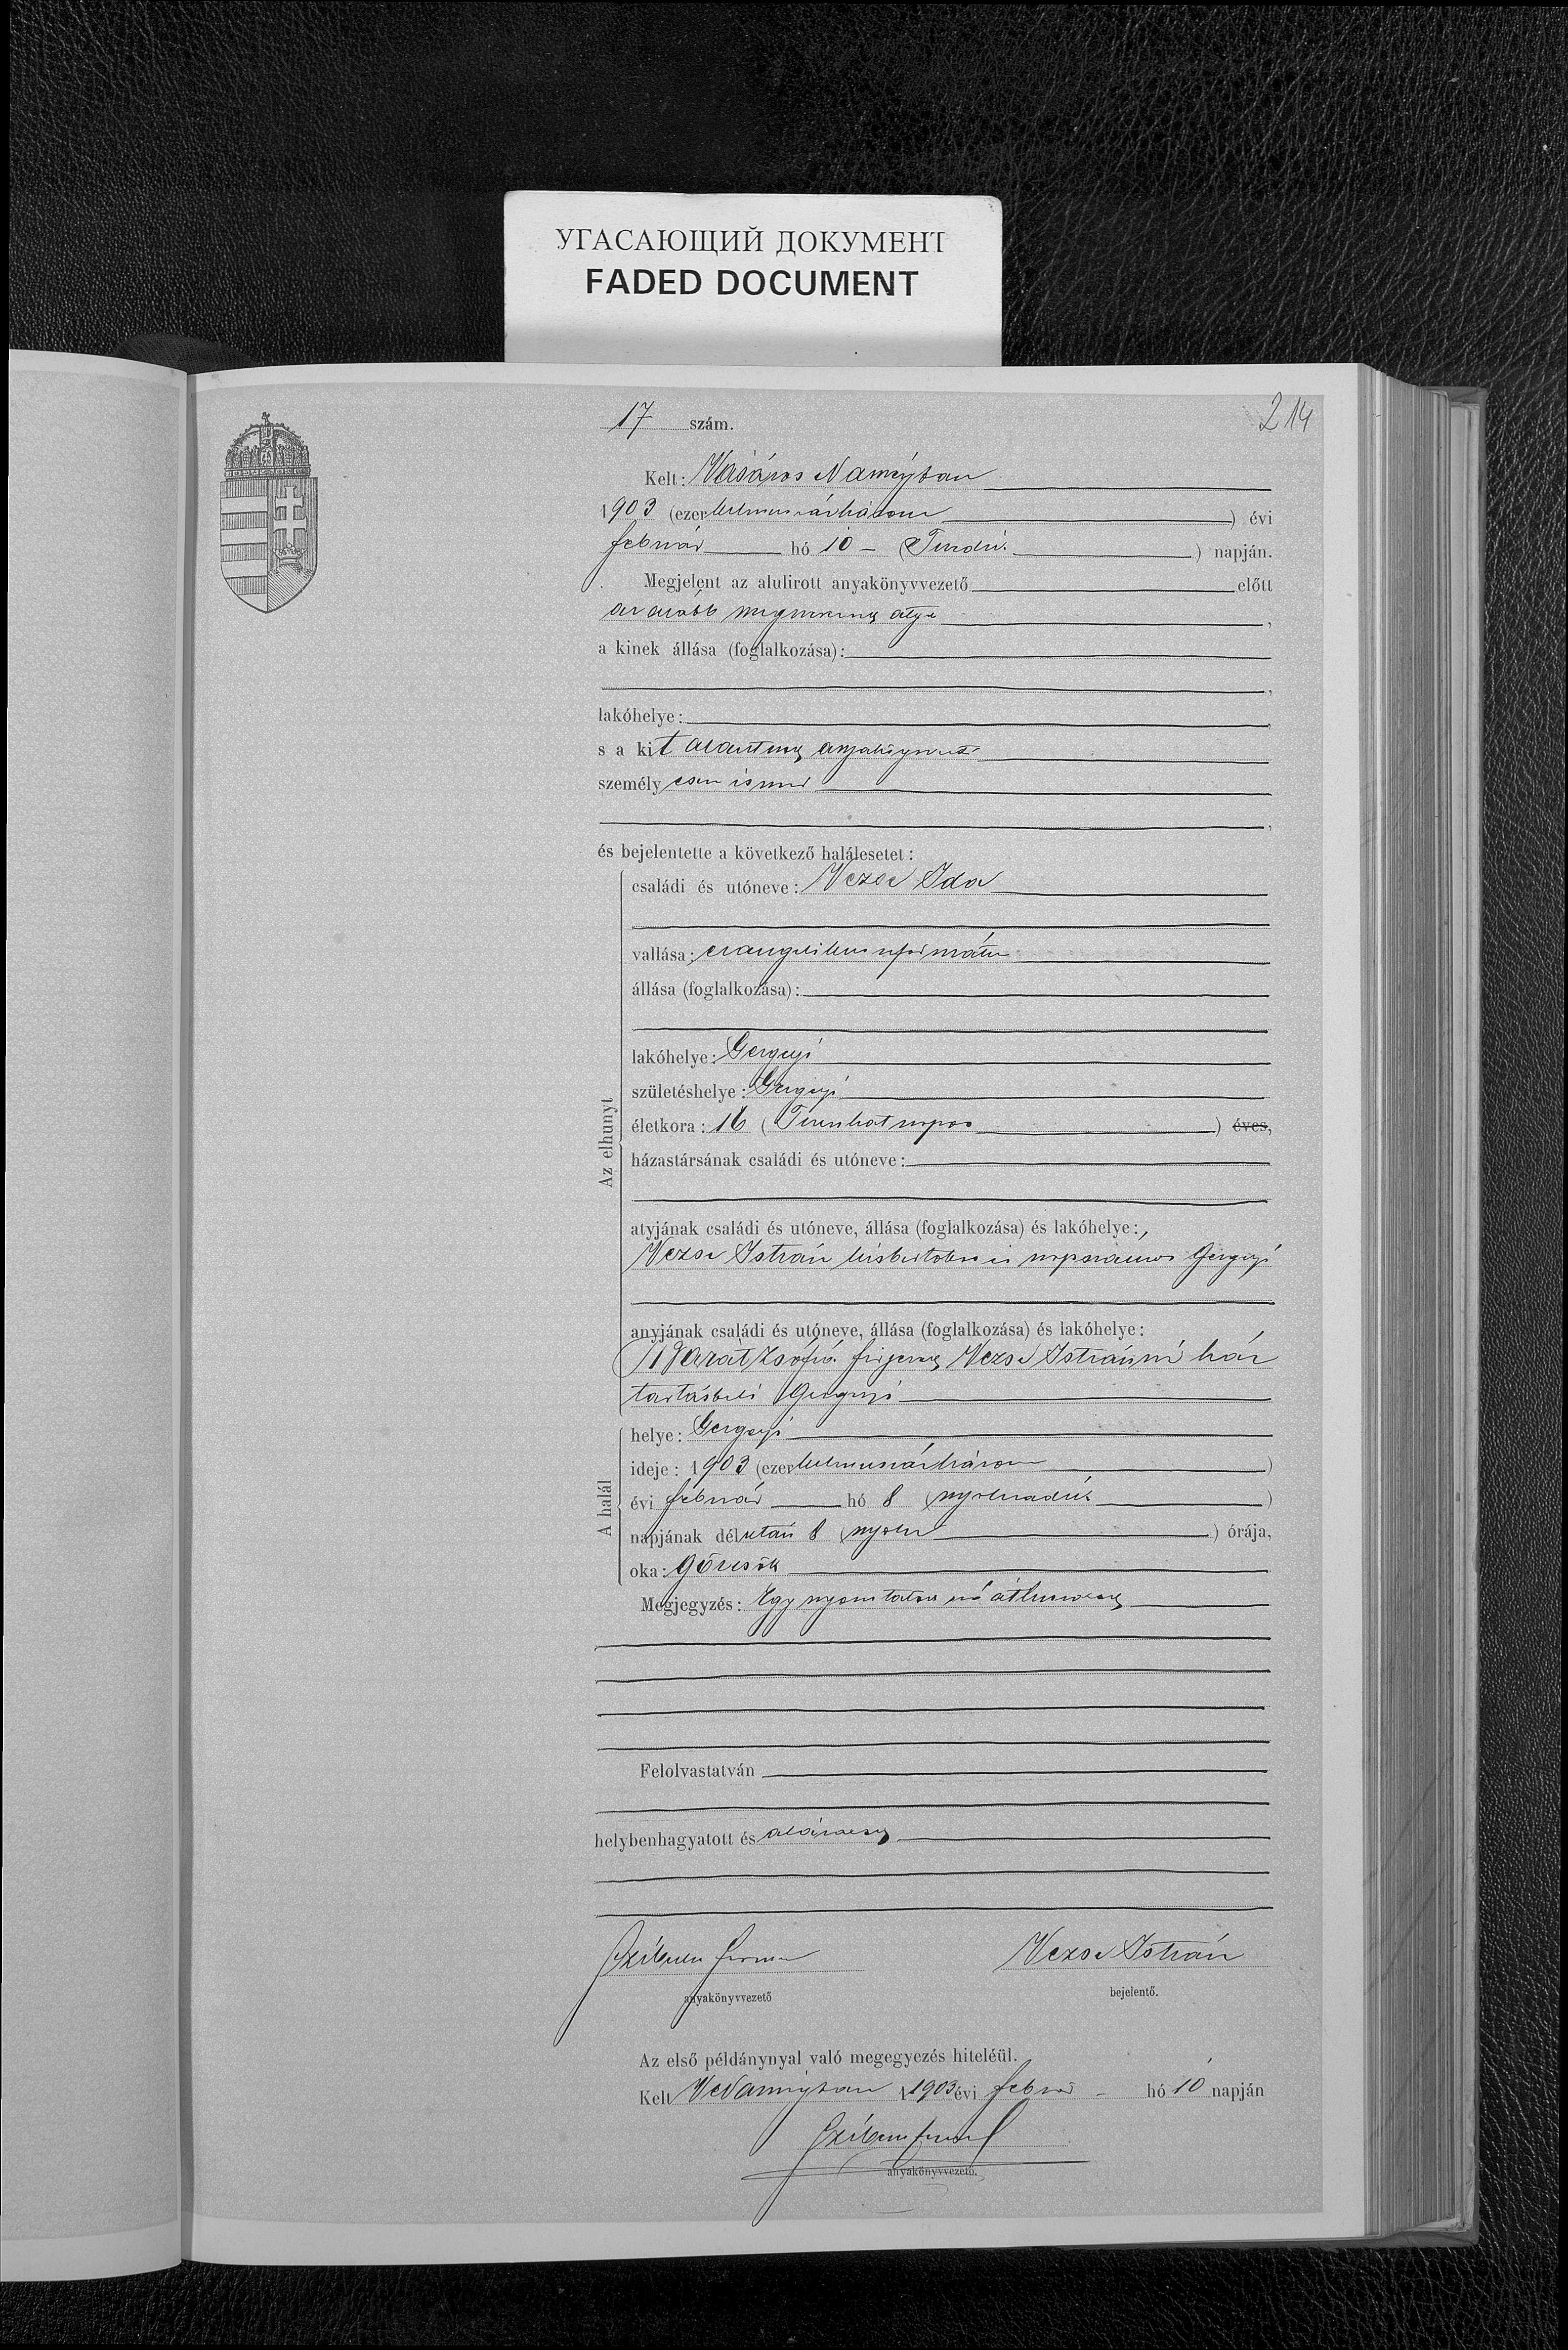 УГАСАЮЩИЙ ДОКУМЕНТ
FADED DOCUMENT
214
17 szám.
Kelt: Vásáros Naményban
1903 (ezerkilenczszázhárom) évi
február hó 10 (Tizedik) napján.
Megjelent az alulirott anyakönyvvezető előtt
az alább megnevezett atya,
a kinek állása (foglalkozása):
lakóhelye:
s a kit alantirott anyakönyvvezető
személyesen ismer
és bejelentette a következő halálesetet:
Az elhunyt
családi és utóneve: Vezse Ida
vallása: evangelikus református
állása (foglalkozása):
lakóhelye: Gergelyi
születéshelye: Gergelyi
életkora: 16 (Tizenhat napos) éves,
házastársának családi és utóneve:
atyjának családi és utóneve, állása (foglalkozása) és lakóhelye:
Vezse István kisbirtokos és napszámos Gergelyi
anyjának családi és utóneve, állása (foglalkozása) és lakóhelye:
Zsófia férjezett Vezse Istvánné ház
tartásbeli Gergelyi
A halál
helye: Gergelyi
ideje: 1903 (ezerkilenczszázhárom)
évi február hó 8 (nyolczadik)
napjának délután 8 (nyolcz) órája,
oka: Görcsök
Megjegyzés: Egy nyomtatott szó
Felolvastatván
helybenhagyatott és aláíratott
Vezse István
anyakönyvvezető
bejelentő.
Az első példánynyal való megegyezés hiteléül.
Kelt VNaményban 1903 évi február hó 10 napján
anyakönyvvezető.